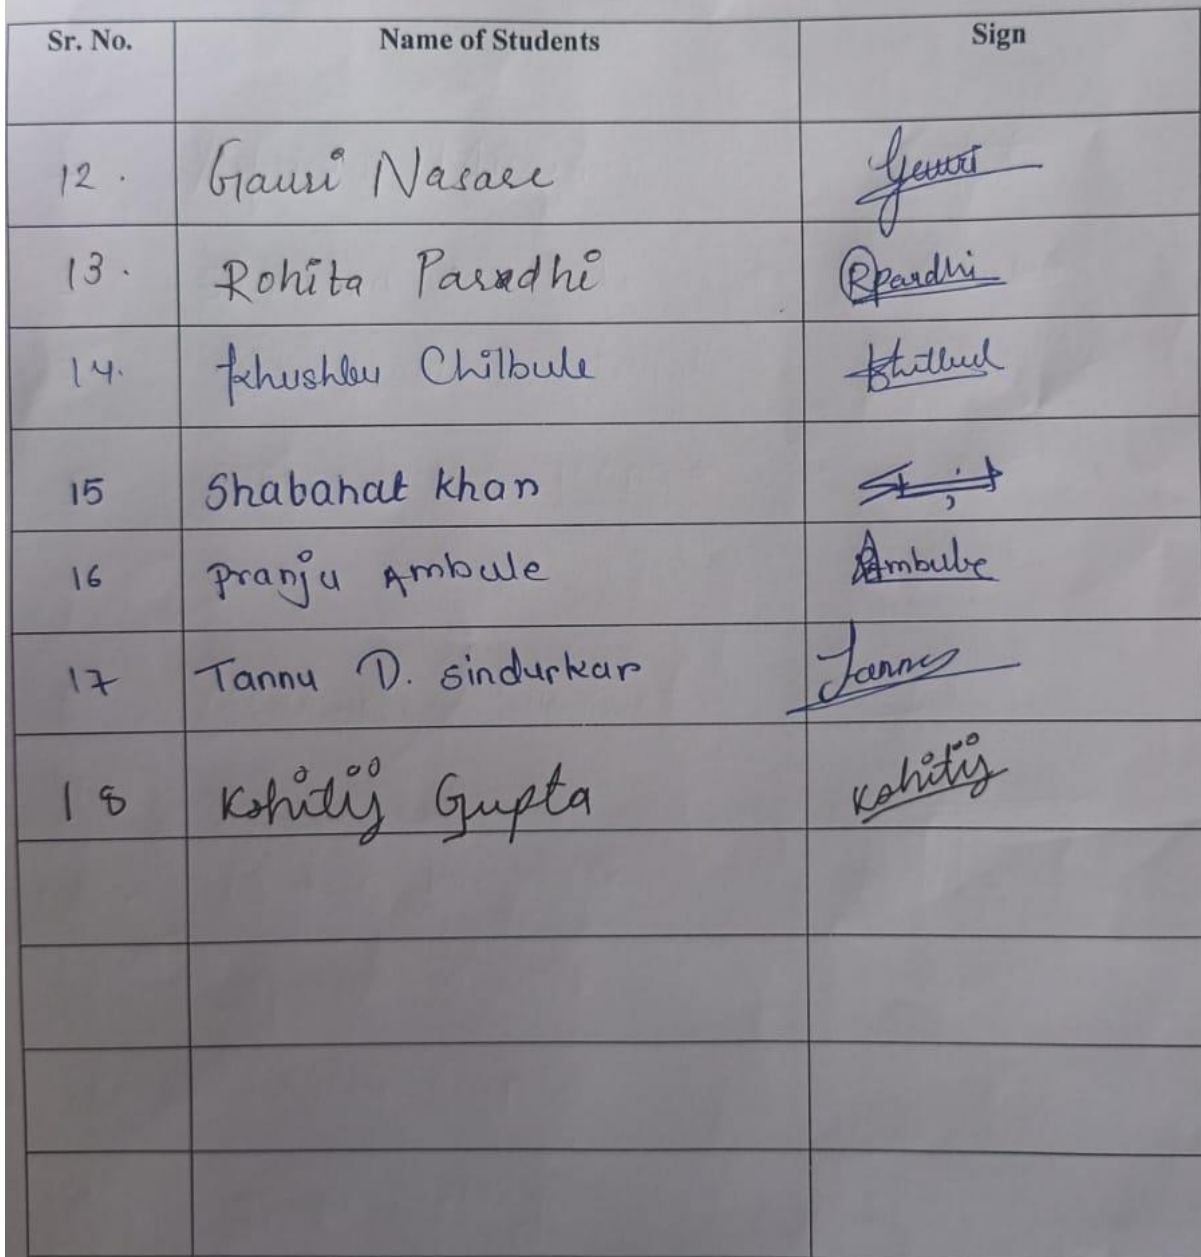 Sr. No. Name of Students Sign
12. Gauri Nasare Gauri
13. Rohita Paradhi RPardhi
14. Khushbu Chilbule
15 Shabahat khan
16 Pranju Ambule Ambule
17 Tannu D. sindurkar Tannu
18 Kshitij Gupta Kshitij